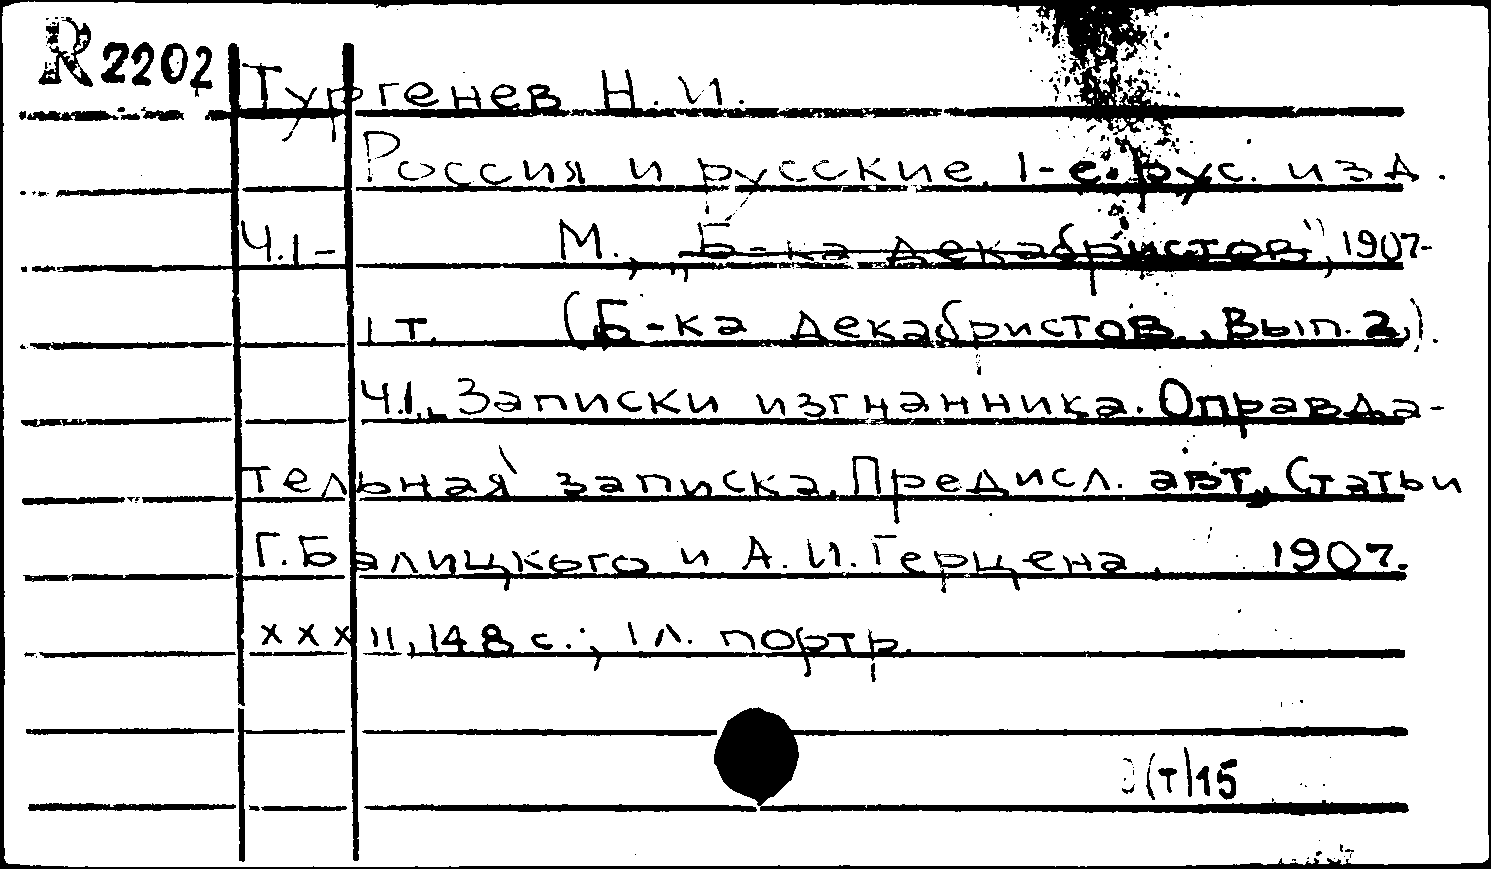 R 2202
Тургенев Н. И.
Россия и русские. 1-е. рус. изд.
Ч.1- М., „Б-ка декабристов", 1907-
1 т. (Б-ка декабристов., Вып. 2,).
Ч.1., Записки изгнанника. Оправда-
тельная записка. Предисл. авт., Статьи
Г. Балицкого и А. И. Герцена. 1907.
XXXII, 148 с.; 1 л. портр.
9(т)15